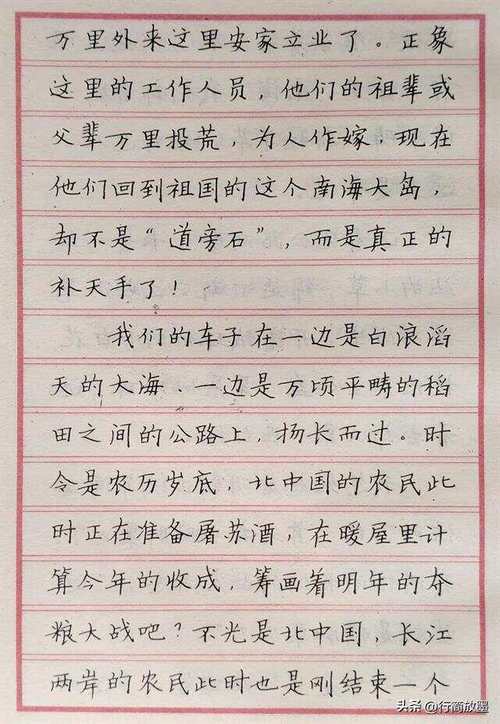 万里外来这里安家立业了。正象
这里的工作人员，他们的祖辈或
父辈万里投荒，为人作嫁，现在
他们回到祖国的这个南海大岛，
却不是“道旁石”，而是真正的
补天手了！
我们的车子在一边是白浪滔
天的大海，一边是万顷平畴的稻
田之间的公路上，扬长而过。时
令是农历岁底，北中国的农民此
时正在准备屠苏酒，在暖屋里计
算今年的收成，筹画着明年的夺
粮大战吧？不光是北中国，长江
两岸的农民此时也是刚结束一个
头条 @行商放墨